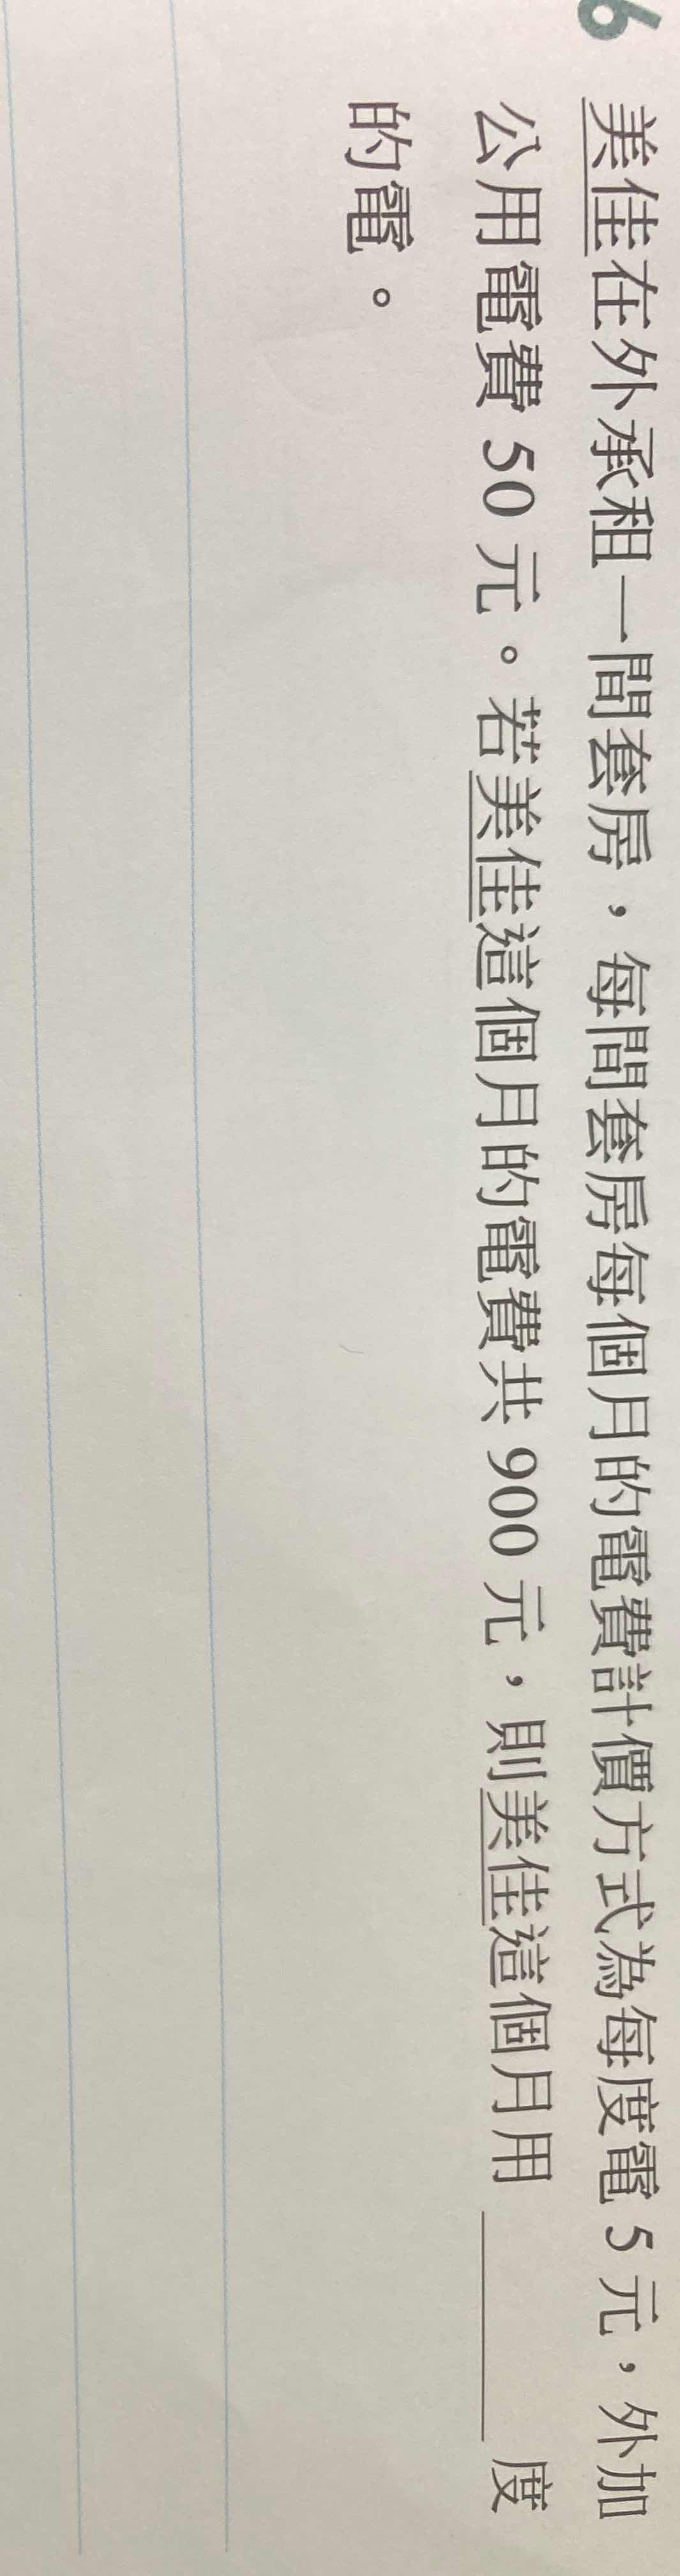 6 美佳在外承租一間套房，每間套房每個月的電費計價方式為每度電 5 元，外加
公用電費 50 元。若美佳這個月的電費共 900 元，則美佳這個月用＿＿＿度
的電。